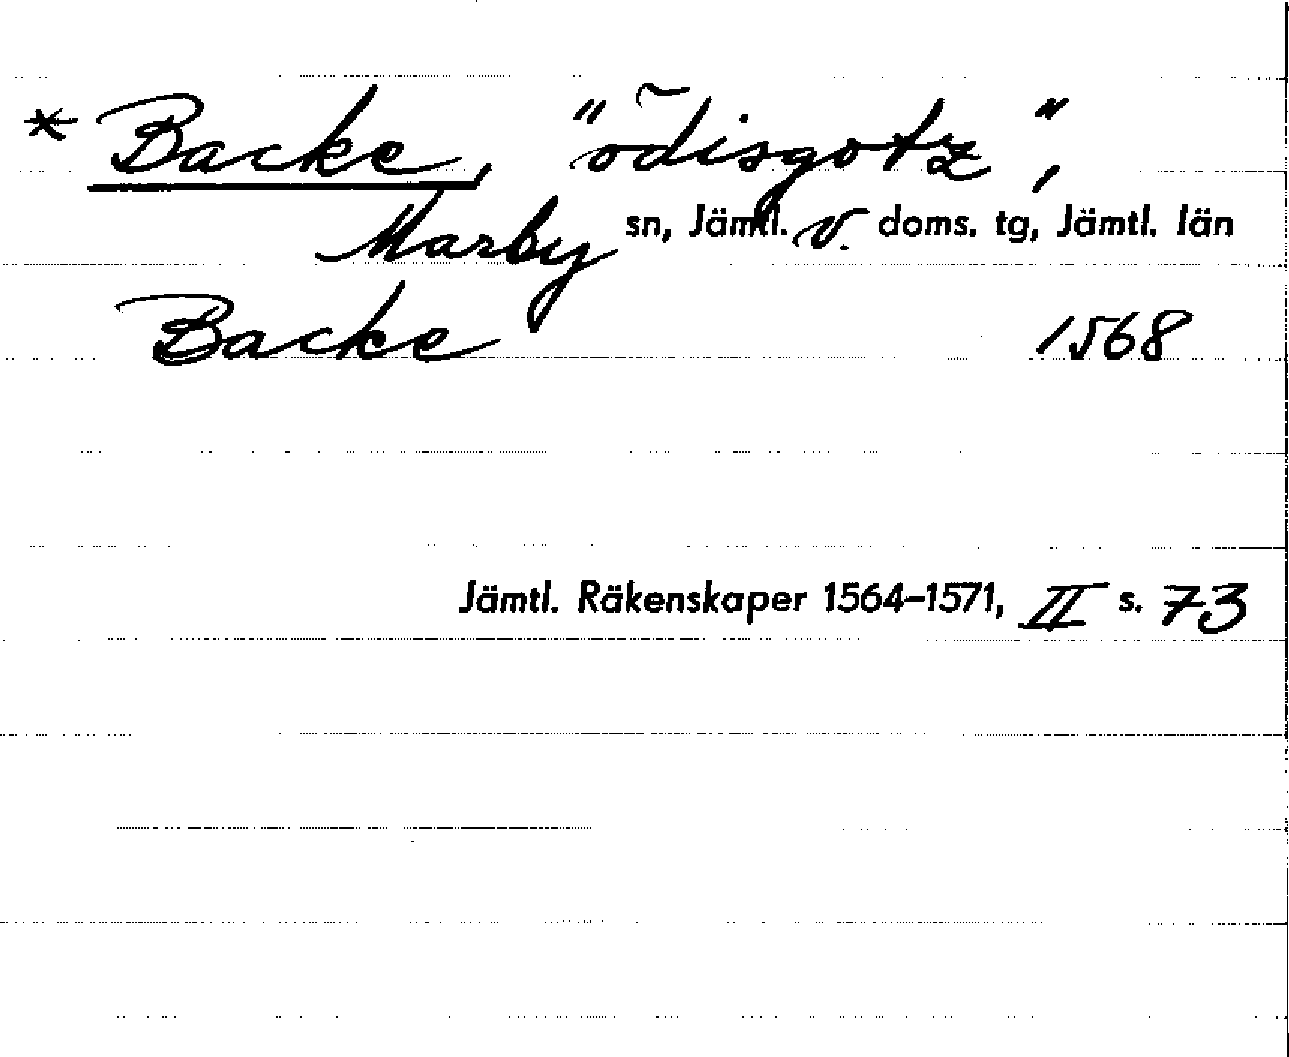 * Backe, "õdisgotz",
Marby sn, Jämtl. v. doms. tg, Jämtl. län
Backe 1568
Jämtl. Räkenskaper 1564-1571, II s. 73